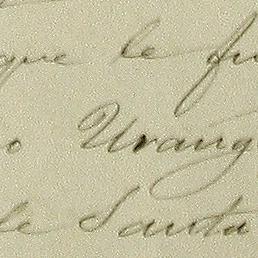 que le fu
o Urang
de Santa